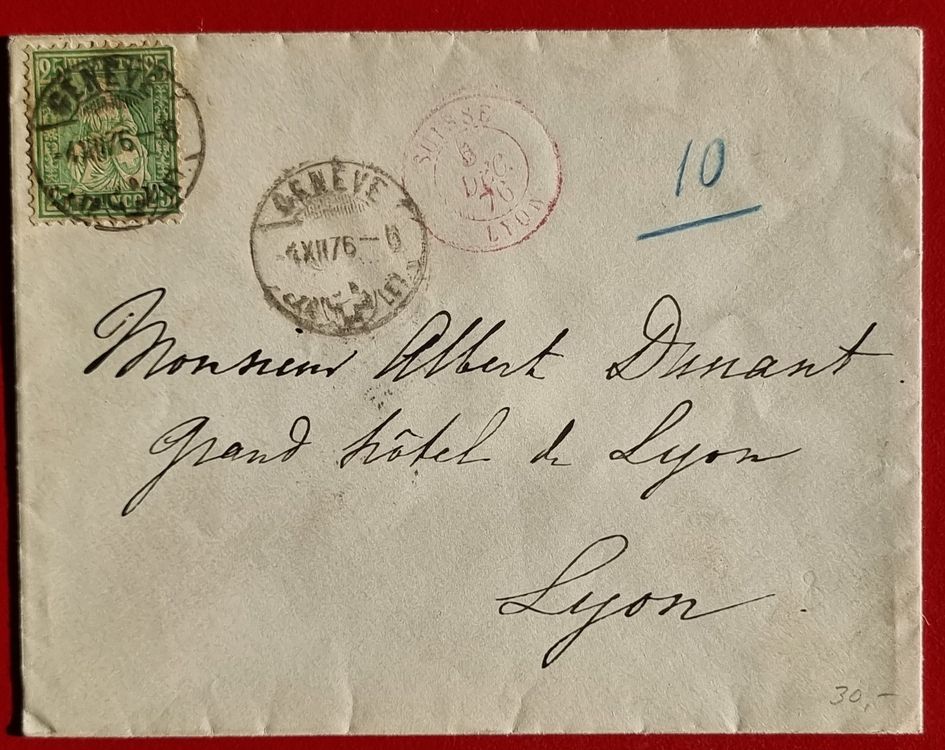 25 25
GENÈVE
-4XII76-6
GENÈVE
-4XII76-6
SUISSE
5
DÉC.
76
LYON
10
Monsieur Albert Dunant.
Grand hôtel de Lyon
Lyon.
30,-